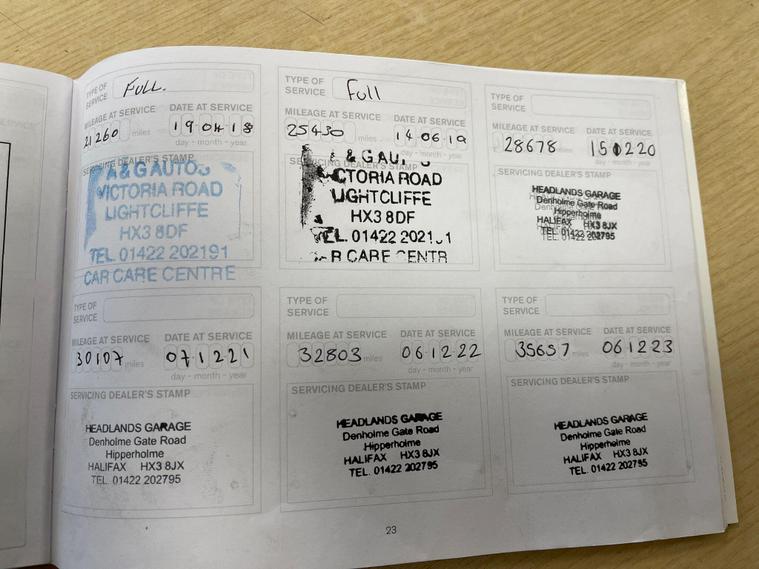 TYPE OF
SERVICE
FULL.
MILEAGE AT SERVICE
DATE AT SERVICE
21260 miles
19 04 18
day - month - year
SERVICING DEALER'S STAMP
A&G AUTOS
VICTORIA ROAD
LIGHTCLIFFE
HX3 8DF
TEL. 01422 202191
CAR CARE CENTRE
TYPE OF
SERVICE
Full
MILEAGE AT SERVICE
DATE AT SERVICE
25430 miles
14 06 19
day - month - year
SERVICING DEALER'S STAMP
& G AU
CTORIA ROAD
LIGHTCLIFFE
HX3 8DF
TEL. 01422 2021 1
R CARE CENTR
TYPE OF
SERVICE
MILEAGE AT SERVICE
DATE AT SERVICE
28678 miles
15 12 20
day - month - year
SERVICING DEALER'S STAMP
HEADLANDS GARAGE
Denholme Gate Road
Hipperholme
HALIFAX HX3 8JX
TEL. 01422 202795
TYPE OF
SERVICE
MILEAGE AT SERVICE
DATE AT SERVICE
30107 miles
07 12 21
day - month - year
SERVICING DEALER'S STAMP
HEADLANDS GARAGE
Denholme Gate Road
Hipperholme
HALIFAX HX3 8JX
TEL. 01422 202795
TYPE OF
SERVICE
MILEAGE AT SERVICE
DATE AT SERVICE
32803 miles
06 12 22
day - month - year
SERVICING DEALER'S STAMP
HEADLANDS GARAGE
Denholme Gate Road
Hipperholme
HALIFAX HX3 8JX
TEL. 01422 202795
TYPE OF
SERVICE
MILEAGE AT SERVICE
DATE AT SERVICE
35657 miles
06 12 23
day - month - year
SERVICING DEALER'S STAMP
HEADLANDS GARAGE
Denholme Gate Road
Hipperholme
HALIFAX HX3 8JX
TEL. 01422 202795
23